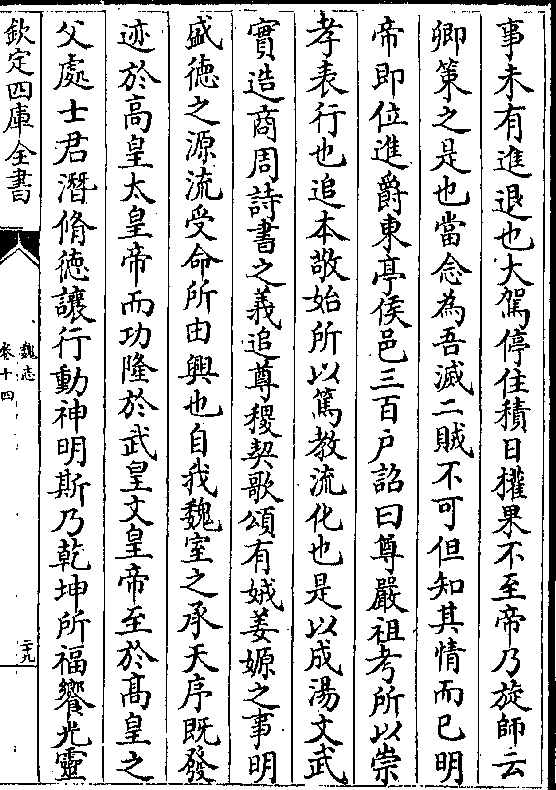 事未有進退也大駕停住積日權果不至帝乃旋師云
卿策之是也當念為吾滅二賊不可但知其情而已明
帝即位進爵東亭侯邑三百户詔曰尊嚴祖考所以崇
孝表行也追本敬始所以篤教流化也是以成湯文武
實造商周詩書之義追尊稷契歌頌有娀姜嫄之事明
盛徳之源流受命所由興也自我魏室之承天序既發
迹於高皇太皇帝而功隆於武皇文皇帝至於髙皇之
父處士君潛脩徳讓行動神明斯乃乾坤所福饗光靈
欽定四庫全書
魏志
卷十四
二十九